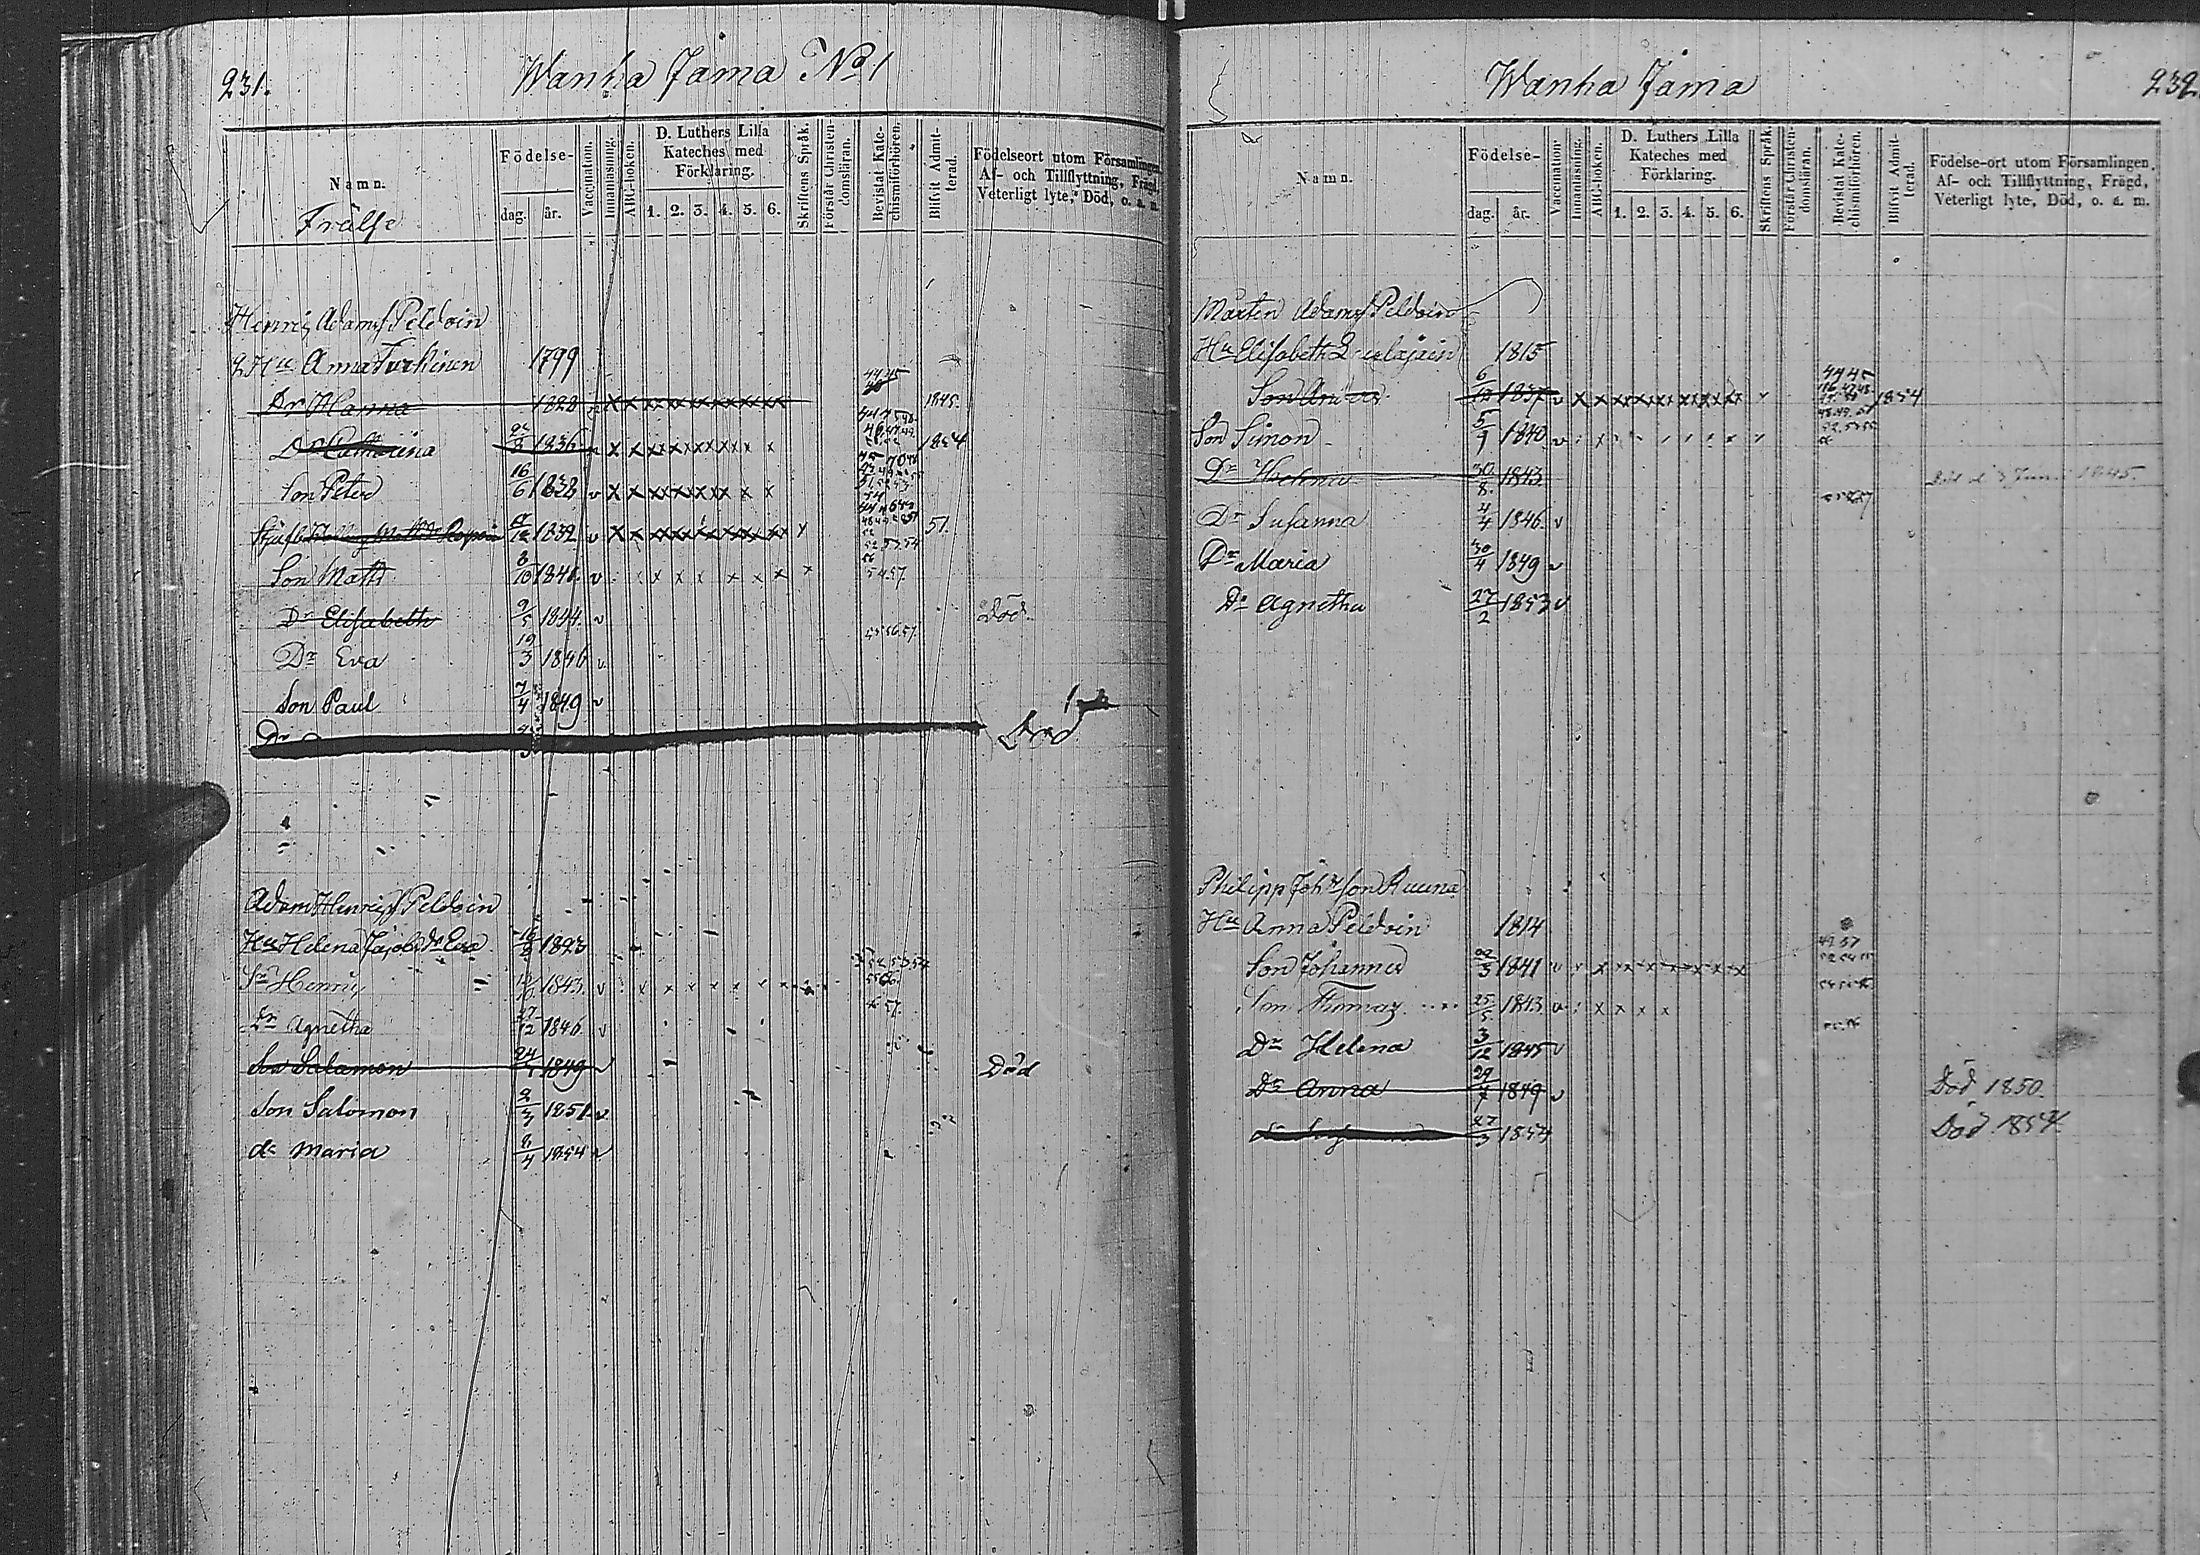 231.
Wanha Jama No 1
Namn.
Födelse-
dag.
år.
Vaccination.
Innanläsning.
ABC-boken.
D. Luthers Lilla
Kateches med
Förklaring.
1. 2. 3. 4. 5. 6.
Skriftens Språk.
Förstår Christen-
domsläran.
Bevistat Kate-
chismiförhören.
Blifvit Admit-
terad.
Födelseort utom Församlingen,
Af- och Tillflyttning, Frägd,
Veterligt lyte, Död, o. a. m.
Frälse
Henric Adamss Peldoin
2 Hu Anna Turkinen 1799
Dr Hanna 1828 1845.
Dr Catharina 1836 1854
Son Peter 16/6 1838 v
1832 v 51.
Son Matts 3/10 1841. v 54 57.
Dr Elisabeth 9/5 1844. v Död.
55 56 57.
Dr Eva 19/3 1846 v
Son Paul 7/4 1849 v
Dr Död
Adam Henricss Peldoin
Hu Helena 1823
Sn Henric 1843. v
Dr Agnetha 27/12 1846 v
Son Salomon 24 1849 v Död
Son Salomon 2/3 1851 v
dr Maria 2/4 1854 v
Wanha Jama
232.
Namn.
Födelse-
dag.
år.
Vaccination.
Innanläsning.
ABC-boken.
D. Luthers Lilla
Kateches med
Förklaring.
1. 2. 3. 4. 5. 6.
Skriftens Språk.
Förstår Christen-
domsläran.
Bevistat Kate-
chismiförhören.
Blifvit Admit-
terad.
Födelse-ort utom Församlingen,
Af- och Tillflyttning, Frägd,
Veterligt lyte, Död, o. a. m.
Mårten Adamss Peldoin
Hu Elisabeth 1815
Son 1837 v 1854
Son Simon 5/9 1840 v
Dr Helena 30/8. 1843. Död d 3 Juni 1845.
Dr Susanna 4/4 1846. v
Dr Maria 30/4 1849 v
Dr Agnetha 27/2 1853 v
Philipp Johsson Ruuna
Hu Anna Peldoin 1814
Son Johannes 22/3 1841 v
Son Thomas 25/5 1843. v
Dr Helena 3/12 1845 v
Dr Anna 29/7 1849 v Död 1850.
27/3 1854 Död 1854.